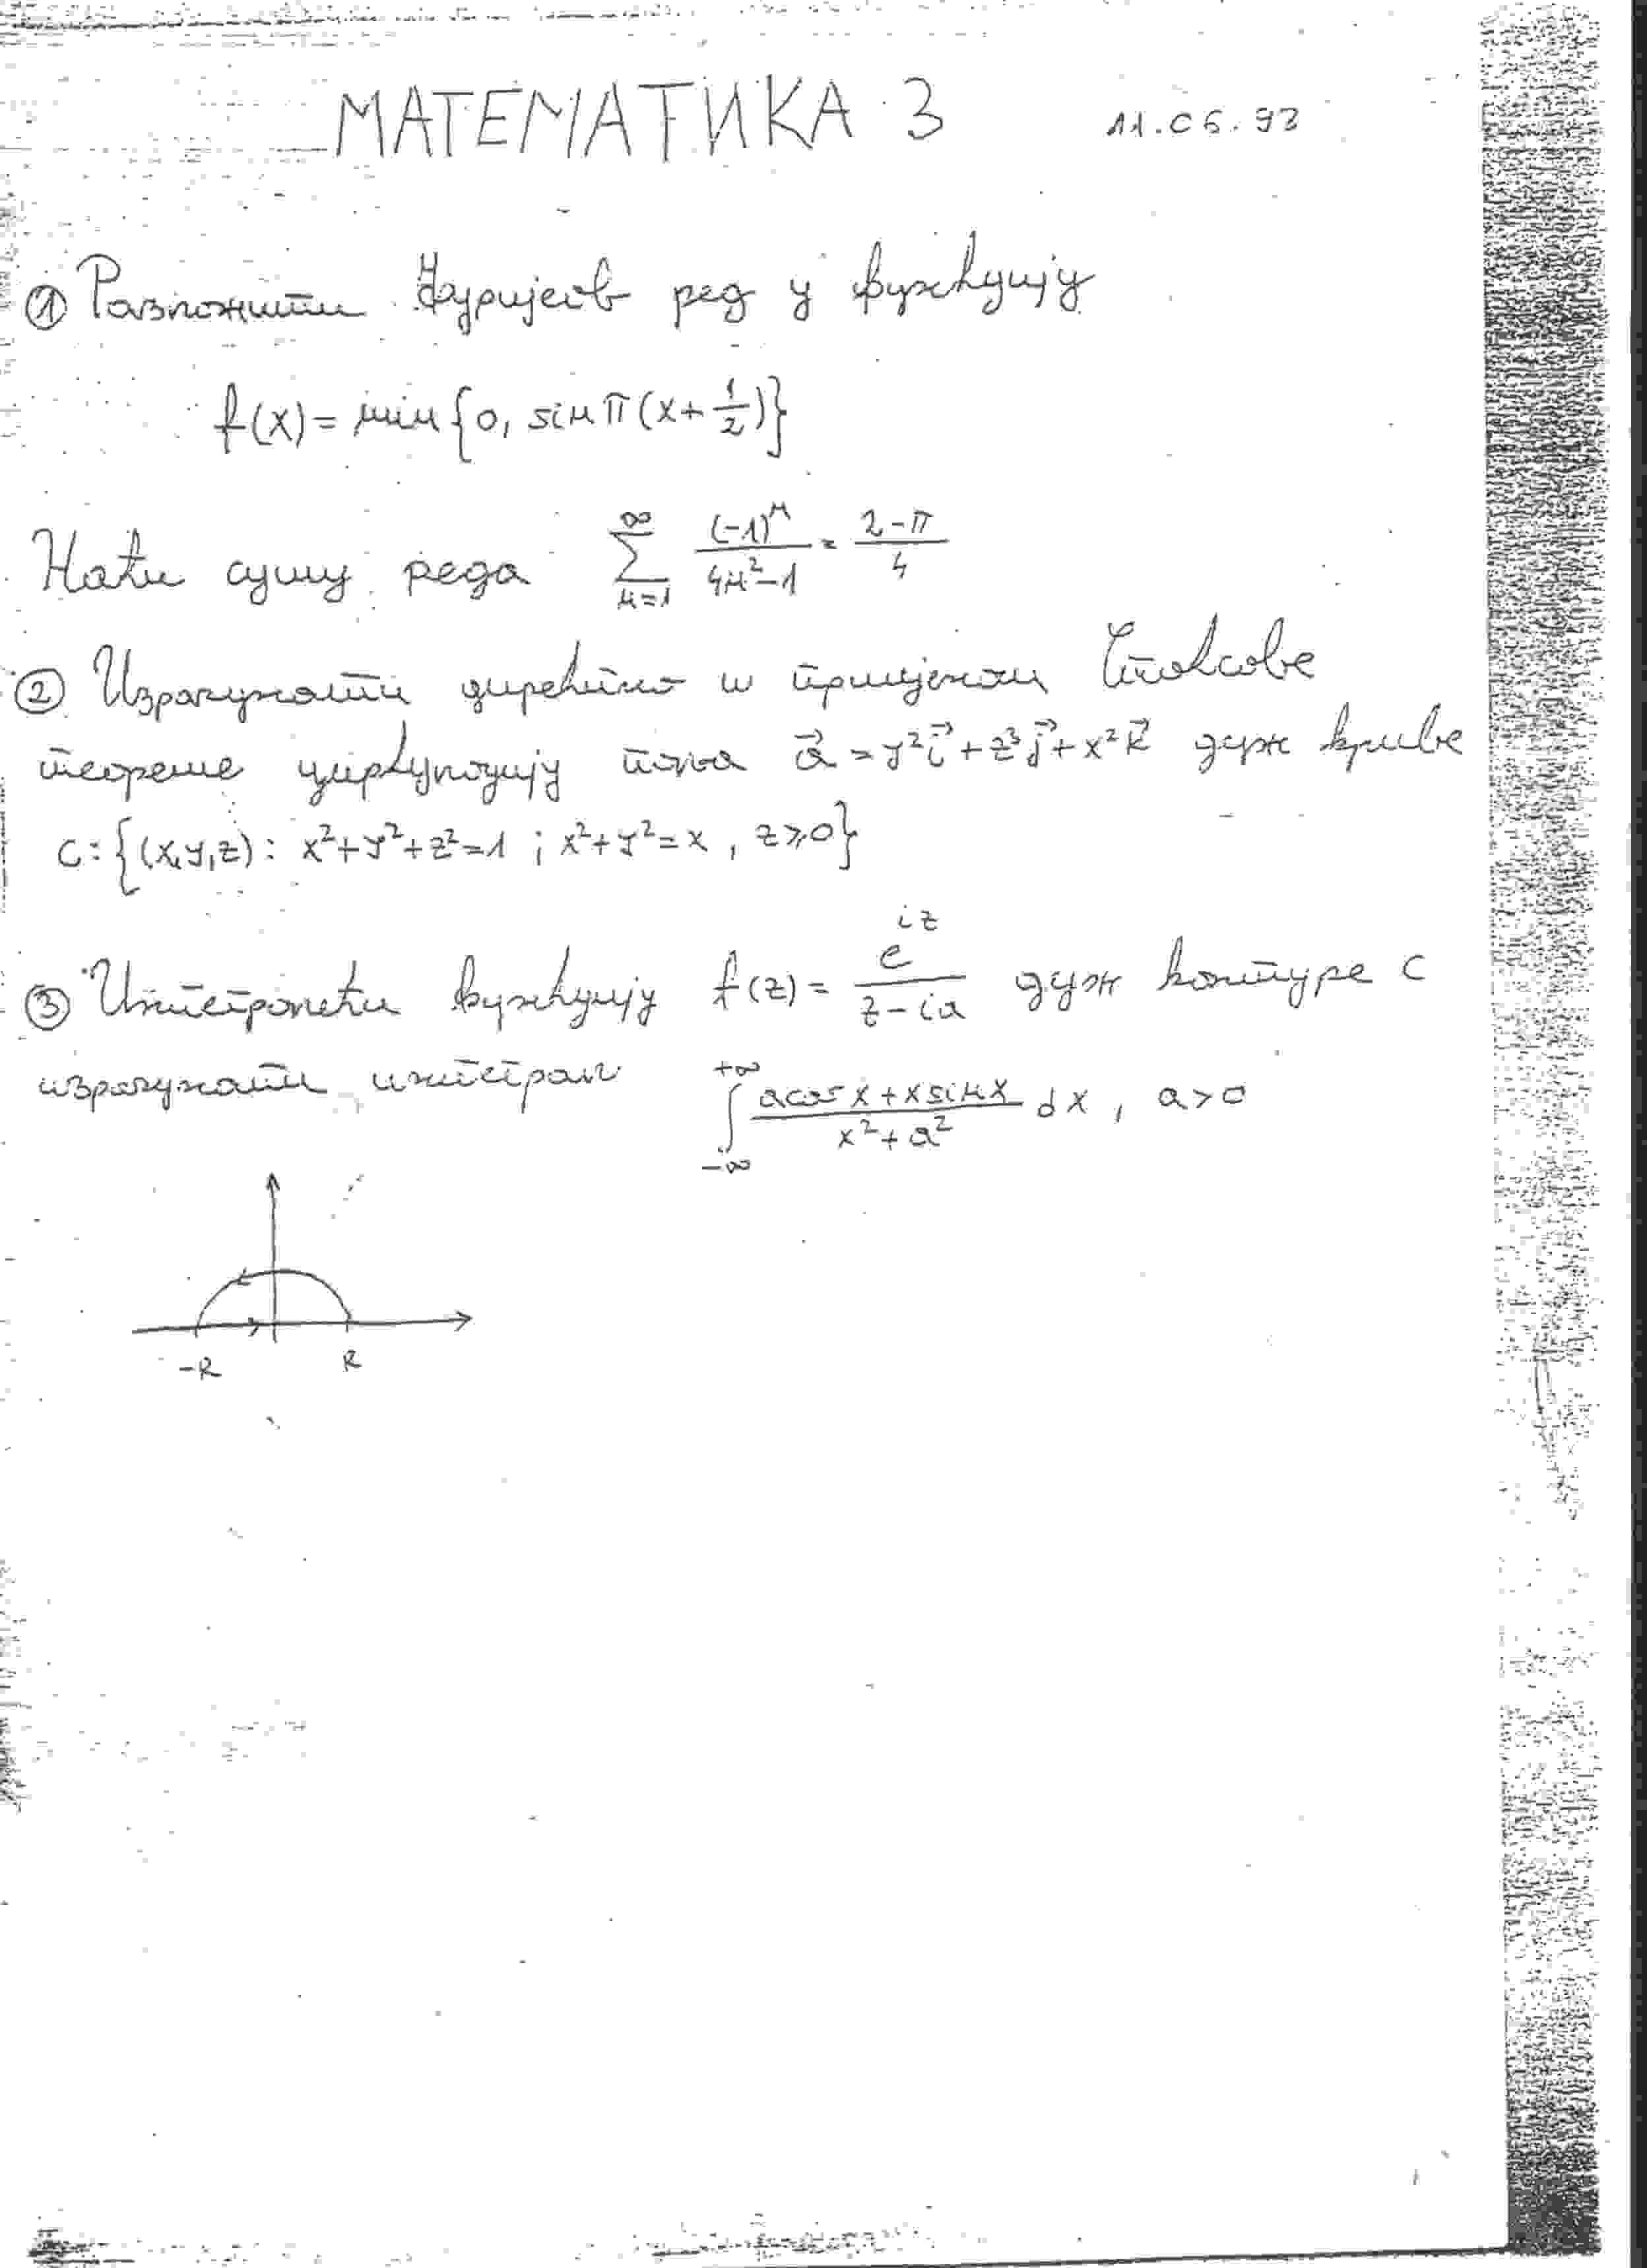 МАТЕМАТИКА 3 11.06.93
① Разложити Фуријеов ред у функцију
f(x) = min{0, sin π(x+1/2)}
Наћи суму реда ∑_{n=1}^{∞} (-1)^n/(4n²-1) = (2-π)/4
② Израчунати директно и примјеном Стоксове
теореме циркулацију поља a⃗ = y²i⃗ + z³j⃗ + x²k⃗ дуж криве
C: {(x,y,z): x²+y²+z²=1 ; x²+y²=x , z⩾0}
③ Интегралећи функцију f(z) = e^{iz}/(z-ia) дуж контуре C
израчунати интеграл ∫_{-∞}^{+∞} (a cos x + x sin x)/(x²+a²) dx , a>0
-R R